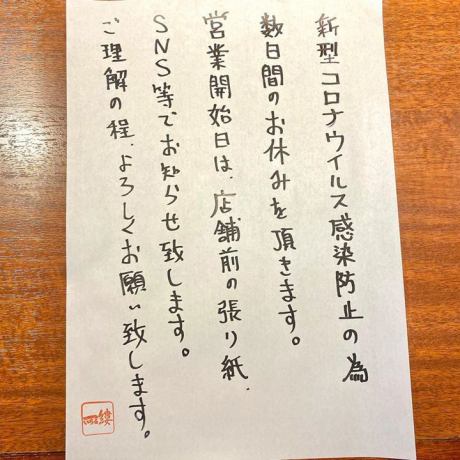 新型コロナウイルス感染防止の為
数日間のお休みを頂きます。
営業開始日は、店舗前の張り紙、
SNS等でお知らせ致します。
ご理解の程、よろしくお願い致します。